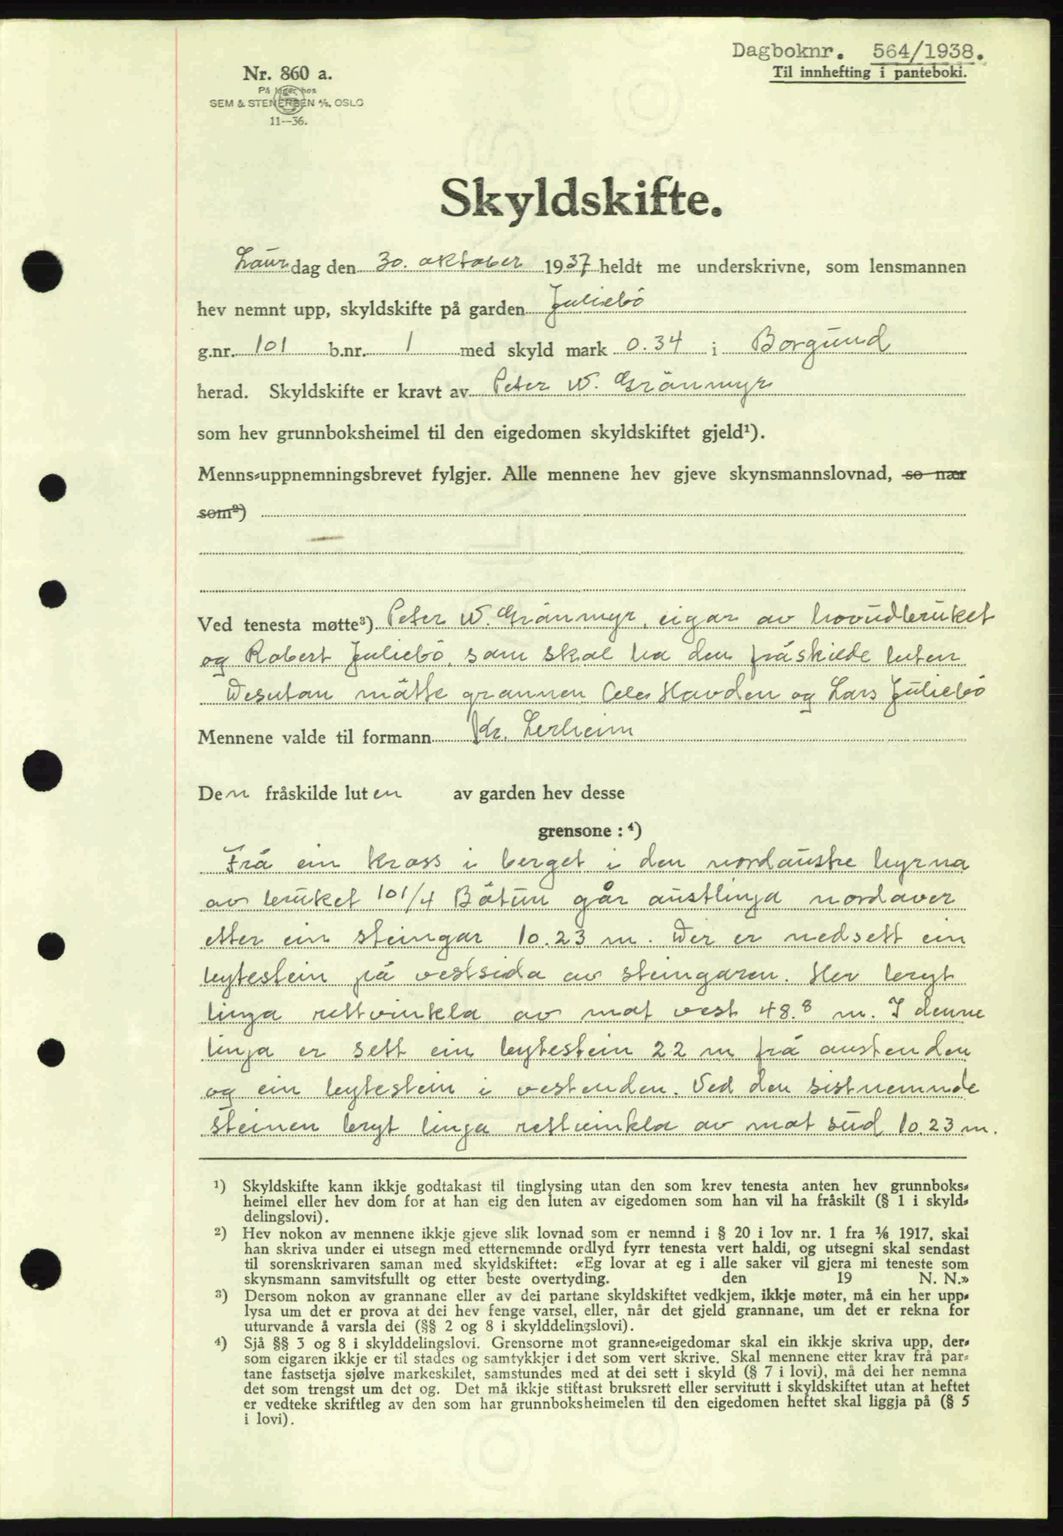 Dagboknr. 564/1938.
Til innhefting i panteboki.
Nr. 860 a.
På lager hos
SEM & STENERSEN A/S, OSLO
11--36.
Skyldskifte.
Laurdag den 30. oktober 1937 heldt me underskrivne, som lensmannen
hev nemnt upp, skyldskifte på garden Juliebö
g.nr. 101 b.nr. 1 med skyld mark 0.34 i Borgund
herad. Skyldskifte er kravt av Peter W. Grönmyr
som hev grunnboksheimel til den eigedomen skyldskiftet gjeld¹).
Menns-uppnemningsbrevet fylgjer. Alle mennene hev gjeve skynsmannslovnad, so nær
som²)
Ved tenesta møtte³) Peter W. Grönmyr, eigar av hovudbruket
og Robert Juliebö, som skal ha den fråskilde luten
Desutan mötte grannen Hovden og Lars Juliebö
Mennene valde til formann Kr. Lerheim
Den fråskilde luten av garden hev desse
grensone : ⁴)
Frå ein kross i berget i den nordaustre hyrna
av bruket 101/4 Båtun går austlinja nordover
etter ein steingar 10.23 m. Der er nedsett ein
bytestein på vestsida av steingaren. Her bryt
linja rettvinkla av mot vest 48.8 m. I denne
linja er sett ein bytestein 22 m frå austenden
og ein bytestein i vestenden. Ved den sistnemnde
steinen bryt linja rettvinkla av mot sud 10.23 m.
¹) Skyldskifte kann ikkje godtakast til tinglysing utan den som krev tenesta anten hev grunnboks-
heimel eller hev dom for at han eig den luten av eigedomen som han vil ha fråskilt (§ 1 i skyld-
delingslovi).
²) Hev nokon av mennene ikkje gjeve slik lovnad som er nemnd i § 20 i lov nr. 1 fra 1/6 1917, skal
han skriva under ei utsegn med etternemnde ordlyd fyrr tenesta vert haldi, og utsegni skal sendast
til sorenskrivaren saman med skyldskiftet: «Eg lovar at eg i alle saker vil gjera mi teneste som
skynsmann samvitsfullt og etter beste overtyding. den 19 N. N.»
³) Dersom nokon av grannane eller av dei partane skyldskiftet vedkjem, ikkje møter, må ein her upp-
lysa um det er prova at dei hev fenge varsel, eller, når det gjeld grannane, um det er rekna for
uturvande å varsla dei (§§ 2 og 8 i skylddelingslovi).
⁴) Sjå §§ 3 og 8 i skylddelingslovi. Grensorne mot granne-eigedomar skal ein ikkje skriva upp, der-
som eigaren ikkje er til stades og samtykkjer i det som vert skrive. Skal mennene etter krav frå par-
tane fastsetja sjølve markeskilet, samstundes med at dei sett i skyld (§ 7 i lovi), må dei her nemna
det som trengst um det og. Det må ikkje stiftast bruksrett eller servitutt i skyldskiftet utan at heftet
er vedteke skriftleg av den som har grunnboksheimelen til den eigedomen heftet skal liggja på (§ 5
i lovi).